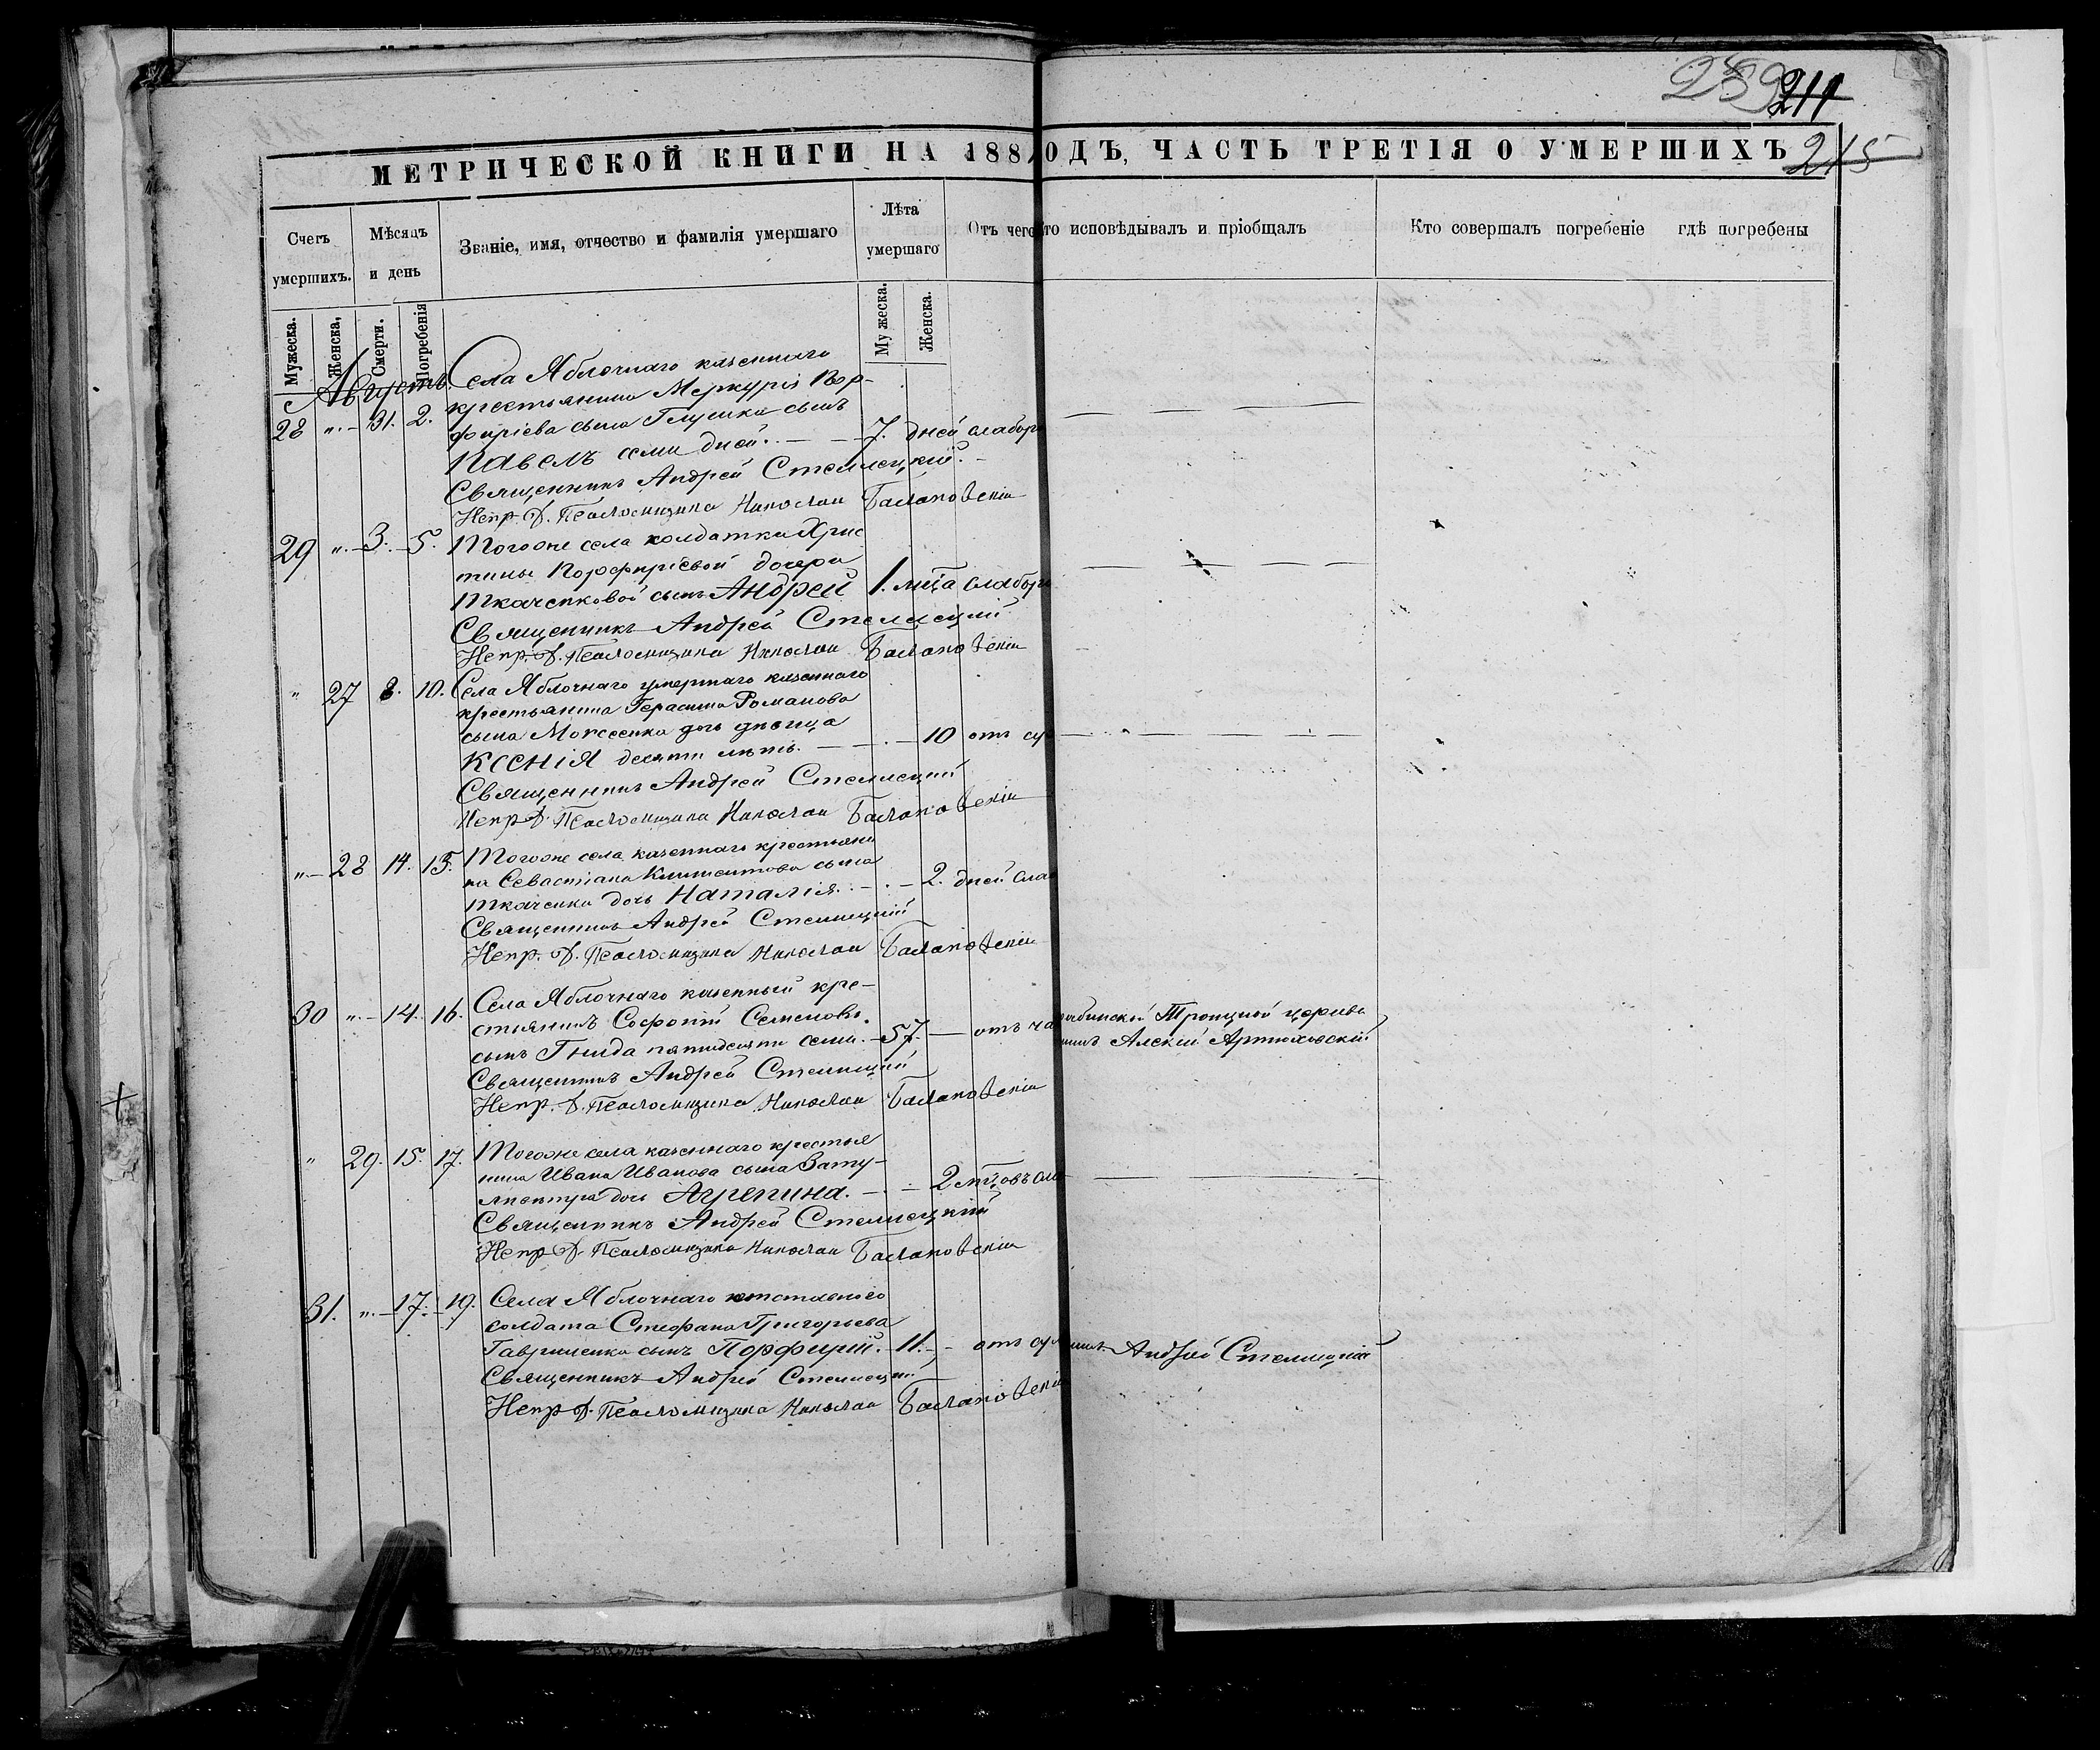 259
211
215
МЕТРИЧЕСКОЙ КНИГИ НА 188 ОДЪ, ЧАСТЬ ТРЕТІЯ О УМЕРШИХЪ
Счетъ умершихъ.
Мѣсяцъ и день
Званіе, имя, отчество и фамилія умершаго
Лѣта умершаго
Отъ чего
то исповѣдывалъ и пріобщалъ
Кто совершалъ погребеніе гдѣ погребены
Мужеска.
Женска,
Смерти.
Погребенія
Мужеска.
Женска.
Августъ.
Села Яблочнаго казеннаго
крестьянина Меркурія Пор-
28 „ 31. 2. фиріева сына Глушка сынъ
Павелъ семи дней. 7. дней слабор
Священникъ Андрей Стеллецкій.
Испр. д. Псаломщика Николай Балановскій
29 „ 3. 5. Тогоже села солдатки Хрис
тины Порфиріевой дочери
Ткаченковой сынъ Андрей 1. слабор
Священникъ Андрей Стеллецкій
Испр. д. Псаломщика Николай Балановскій
„ 27 8. 10. Села Яблочнаго умершаго казеннаго
крестьянина Герасима Романова
сына дочь дѣвица
Ксенія десяти лѣтъ. 10 отъ
Священникъ Андрей Стеллецкій
Испр. д. Псаломщика Николай Балановскій
„ 28 14. 15. Тогоже села казеннаго крестьяни
на Севастіана Климентова сына
Ткаченка дочь Наталія. 2. дней слаб
Священникъ Андрей Стеллецкій
Испр. д. Псаломщика Николай Балановскій
30 „ 14. 16. Села Яблочнаго казенный кре-
стьянинъ Софоній Семеновъ
сынъ Гнида пятидесяти семи. 57. отъ ча
Троицкой церкви
Алексій Артюховскій
Священникъ Андрей Стеллецкій
Испр. д. Псаломщика Николай Балановскій
„ 29. 15. 17. Тогоже села казеннаго крестья
нина Ивана Иванова сына
дочь Агрепина. 2
Священникъ Андрей Стеллецкій
Испр. д. Псаломщика Николай Балановскій
31. „ 17. 19. Села Яблочнаго отставного
солдата Стефана Григорьева
Гавриленка сынъ Порфирій. 11. отъ
Андрей Стеллецкій
Священникъ Андрей Стеллецкій
Испр. д. Псаломщика Николай Балановскій